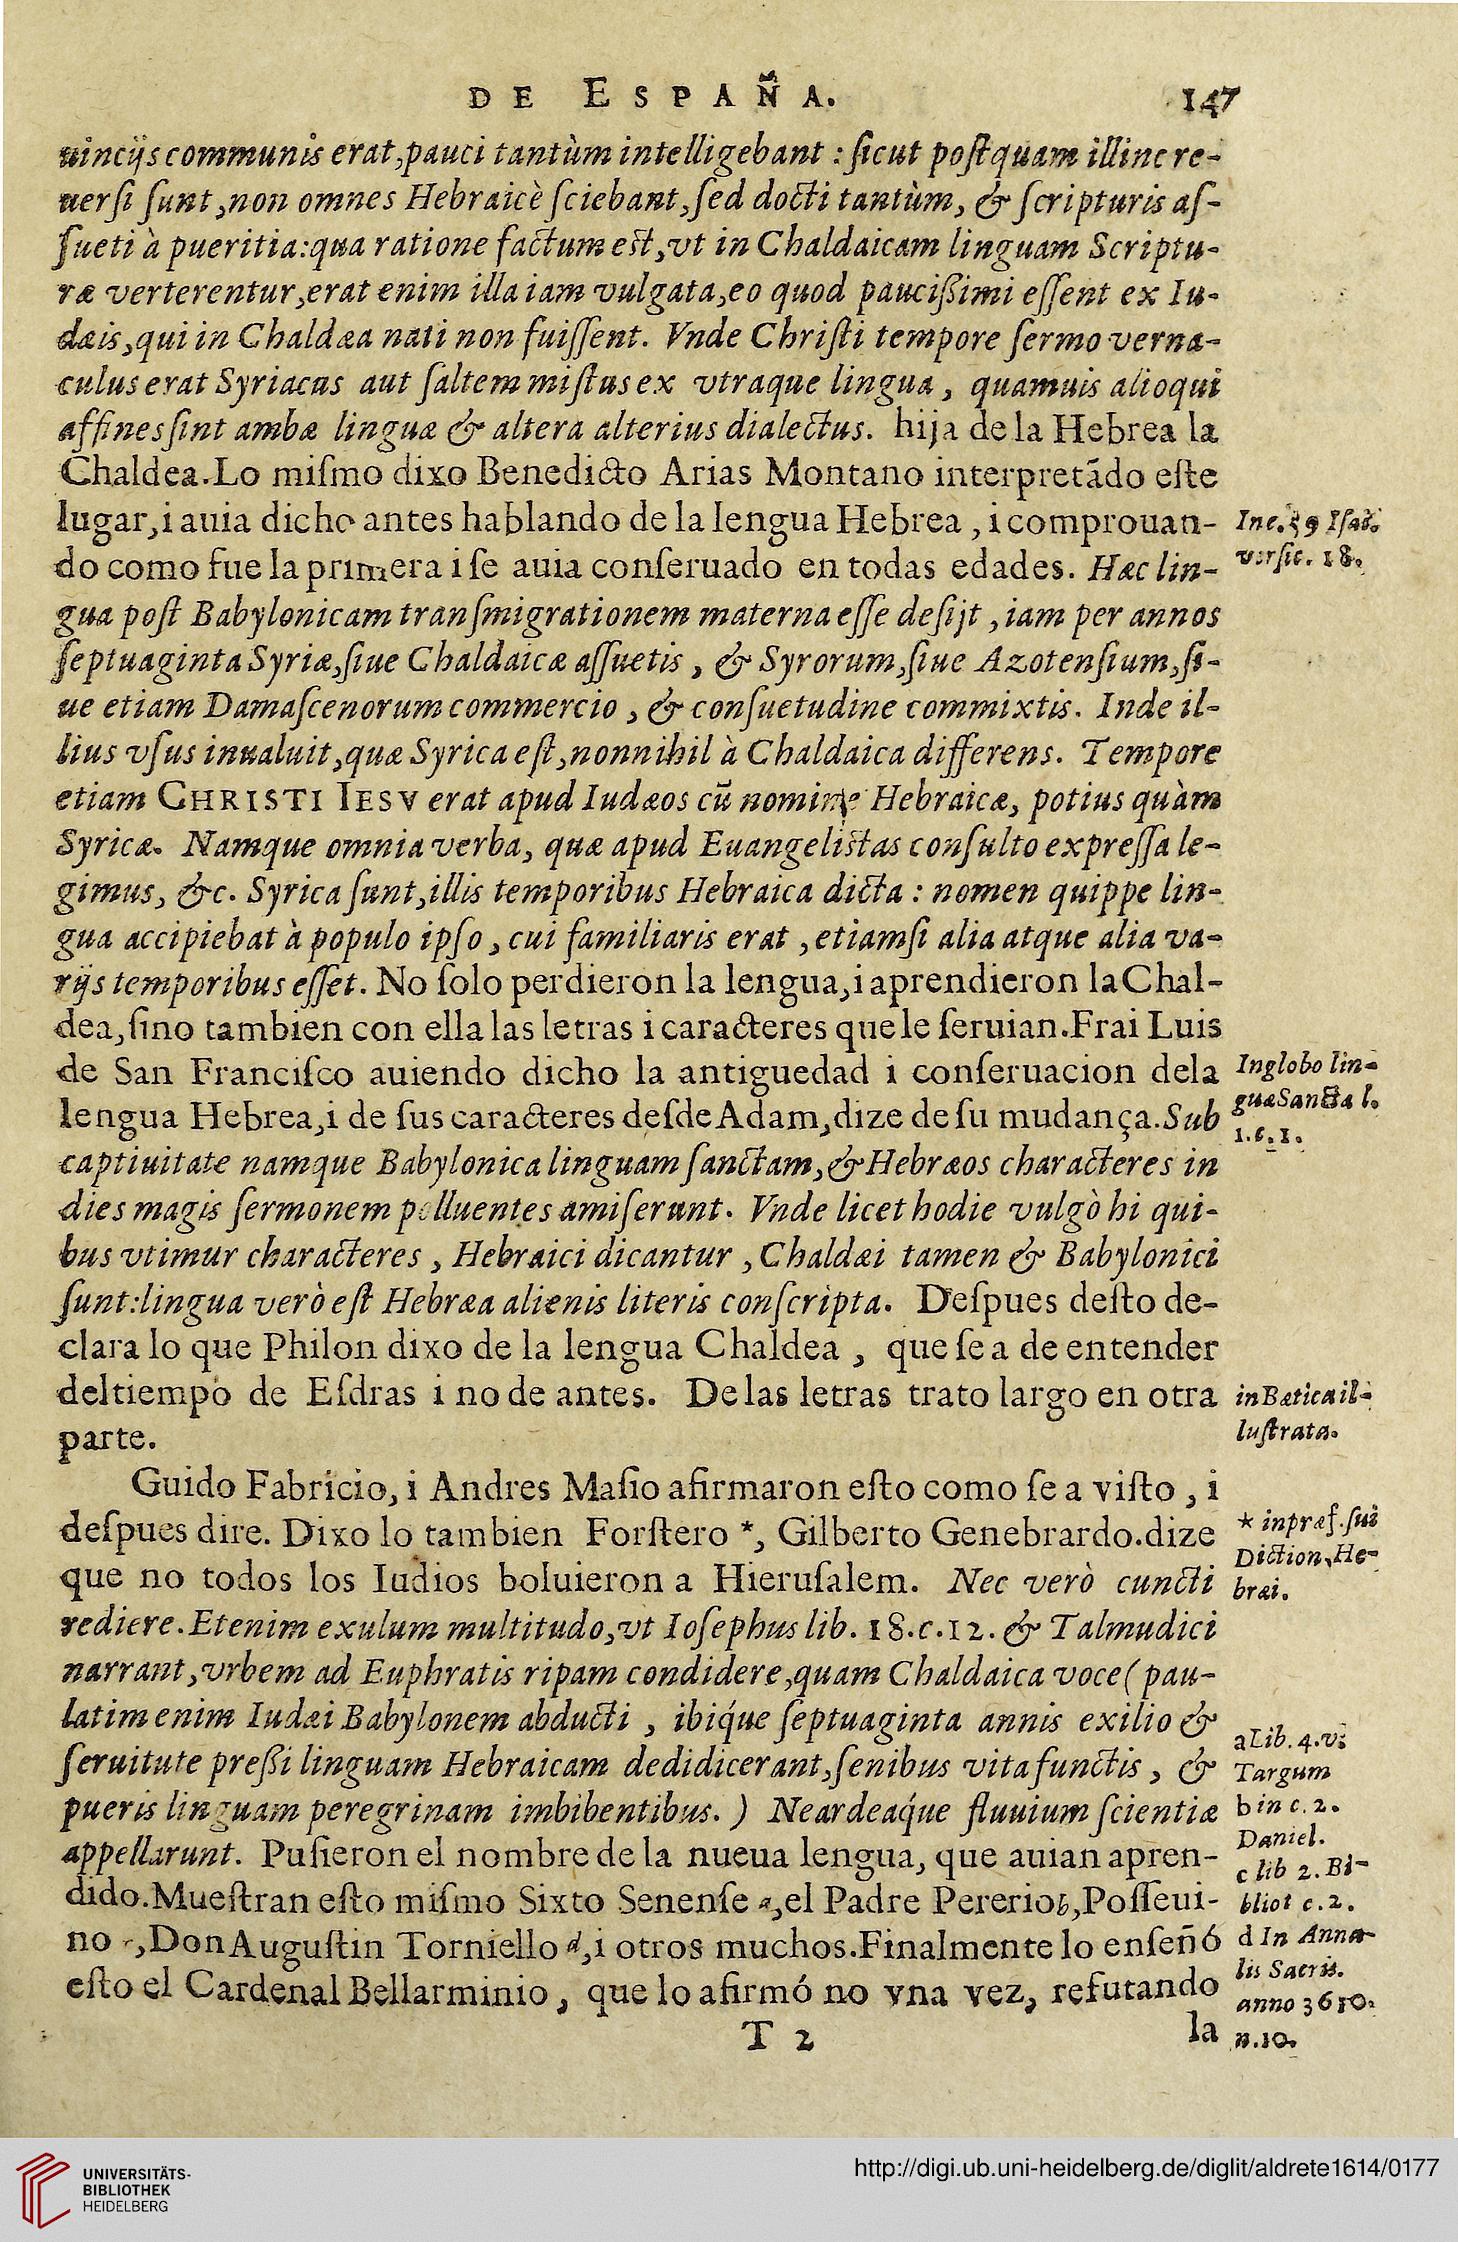 DE ESPAÑA. 147
uincijs communis erat, pauci tantùm intelligebant : ſicut poſtquam illinc re-
uerſi ſunt, non omnes Hebraicè ſciebant, ſed docti tantùm, & ſcripturis aſ-
ſueti à pueritia: qua ratione factum eſt, vt in Chaldaicam linguam Scriptu-
ræ verterentur, erat enim illa iam vulgata, eo quod pauciſſimi eſſent ex Iu-
dæis, qui in Chaldæa nati non fuiſſent. Vnde Chriſti tempore ſermo verna-
culus erat Syriacus aut ſaltem miſtus ex vtraque lingua, quamuis alioqui
affines ſint ambæ linguæ & altera alterius dialectus. hija de la Hebrea la
Chaldea. Lo miſmo dixo Benedicto Arias Montano interpretādo eſte
lugar, i auia dicho antes hablando de la lengua Hebrea, i comprouan-
do como fue la primera i ſe auia conſeruado en todas edades. Hæc lin-
gua poſt Babylonicam tranſmigrationem materna eſſe deſijt, iam per annos
ſeptuaginta Syriæ, ſiue Chaldaicæ aſſuetis, & Syrorum, ſiue Azotenſium, ſi-
ue etiam Damaſcenorum commercio, & conſuetudine commixtis. Inde il-
lius vſus inualuit, quæ Syrica eſt, nonnihil à Chaldaica differens. Tempore
etiam CHRISTI IESV erat apud Iudæos cū nomine Hebraicæ, potius quàm
Syricæ. Namque omnia verba, quæ apud Euangeliſtas conſulto expreſſa le-
gimus, &c. Syrica ſunt, illis temporibus Hebraica dicta : nomen quippe lin-
gua accipiebat à populo ipſo, cui familiaris erat, etiamſi alia atque alia va-
rijs temporibus eſſet. No ſolo perdieron la lengua, i aprendieron la Chal-
dea, ſino tambien con ella las letras i caracteres que le ſeruian. Frai Luis
de San Franciſco auiendo dicho la antiguedad i conſeruacion dela
lengua Hebrea, i de ſus caracteres deſde Adam, dize de ſu mudança. Sub
captiuitate namque Babylonica linguam ſanctam, & Hebræos characteres in
dies magis ſermonem polluentes amiſerunt. Vnde licet hodie vulgò hi qui-
bus vtimur characteres, Hebraici dicantur, Chaldæi tamen & Babylonici
ſunt: lingua verò eſt Hebræa alienis literis conſcripta. Deſpues deſto de-
clara lo que Philon dixo de la lengua Chaldea, que ſe a de entender
del tiempo de Eſdras i no de antes. De las letras trato largo en otra
parte.
Guido Fabricio, i Andres Maſio afirmaron eſto como ſe a viſto, i
deſpues dire. Dixo lo tambien Forſtero *, Gilberto Genebrardo. dize
que no todos los Iudios boluieron a Hieruſalem. Nec verò cuncti
rediere. Etenim exulum multitudo, vt Ioſephus lib. 18. c. 12. & Talmudici
narrant, vrbem ad Euphratis ripam condidere, quam Chaldaica voce (pau-
latim enim Iudæi Babylonem abducti, ibiq́ue ſeptuaginta annis exilio &
ſeruitute preſſi linguam Hebraicam dedidicerant, ſenibus vita functis, &
pueris linguam peregrinam imbibentibus.) Neardeaq́ue fluuium ſcientiæ
appellarunt. Puſieron el nombre de la nueua lengua, que auian apren-
dido. Mueſtran eſto miſmo Sixto Senenſe a, el Padre Pererio b, Poſſeui-
no c, Don Auguſtin Torniello d, i otros muchos. Finalmente lo enſeñó
eſto el Cardenal Bellarminio, que lo afirmó no vna vez, refutando
T 2 la
In c. 19 Iſai.
verſic. 18.
In globo lin-
guæ Sancta l.
1. c. 1.
in Bætica il-
luſtrata.
* in præf. ſui
Diction. He-
bræi.
a Lib. 4. v:
Targum
b in c. 2.
Daniel.
c lib 2. Bi-
bliot c. 2.
d In Anna-
lis Sacris.
anno 3610.
n. 10.
UNIVERSITÄTS-
BIBLIOTHEK
HEIDELBERG
http://digi.ub.uni-heidelberg.de/diglit/aldrete1614/0177